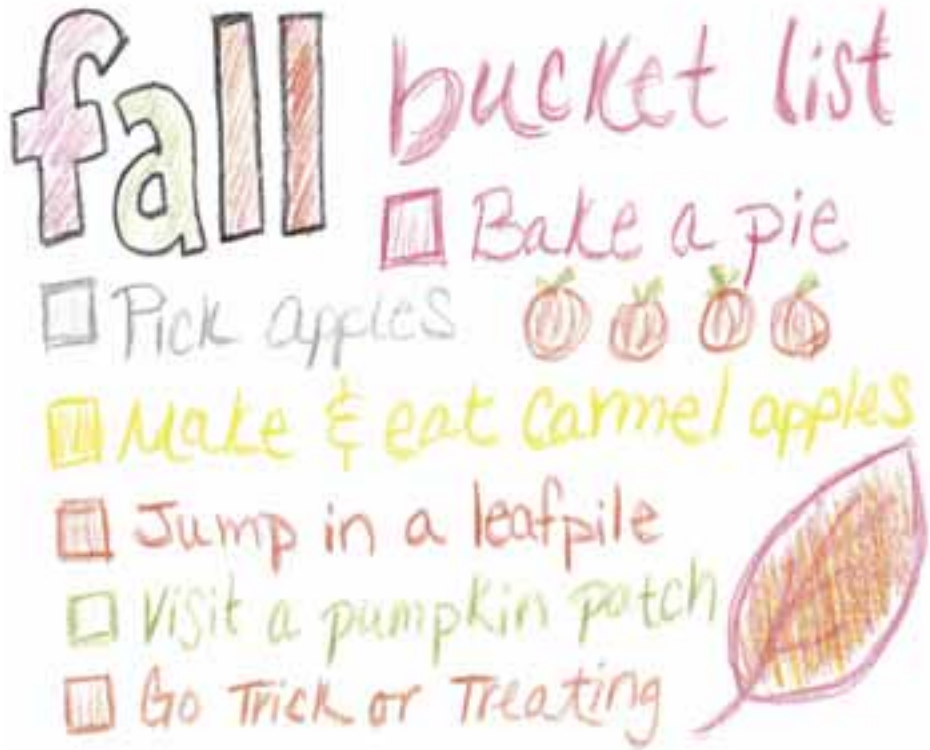 fall bucket list
Bake a pie
Pick apples
Make & eat carmel apples
Jump in a leafpile
Visit a pumpkin patch
Go Trick or Treating